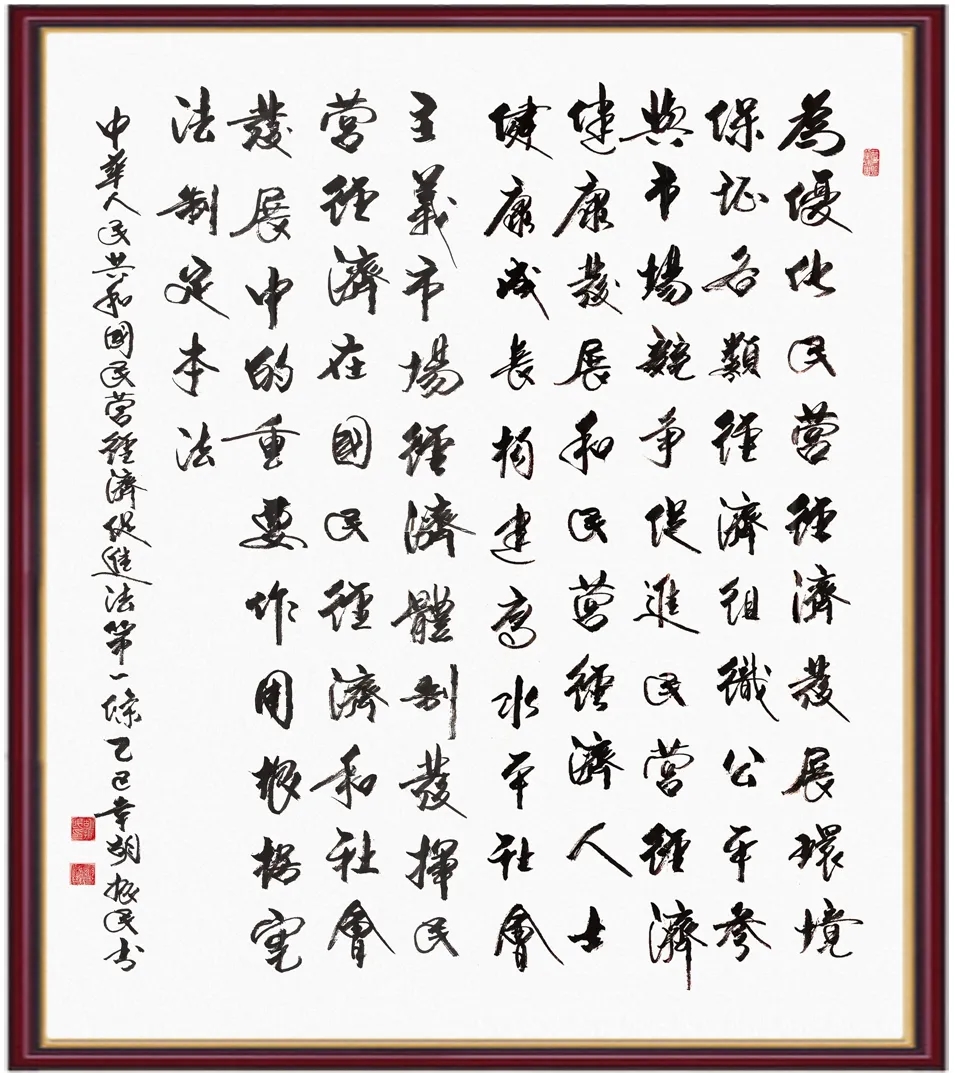 為優化民營經濟發展環境
保証各類經濟組織公平參
與市場競爭促進民營經濟
健康發展和民營經濟人士
健康成長构建高水平社會
主義市場經濟體制發揮民
營經濟在國民經濟和社會
發展中的重要作用根據憲
法制定本法
中華人民共和國民營經濟促進法第一條乙巳年胡振民书